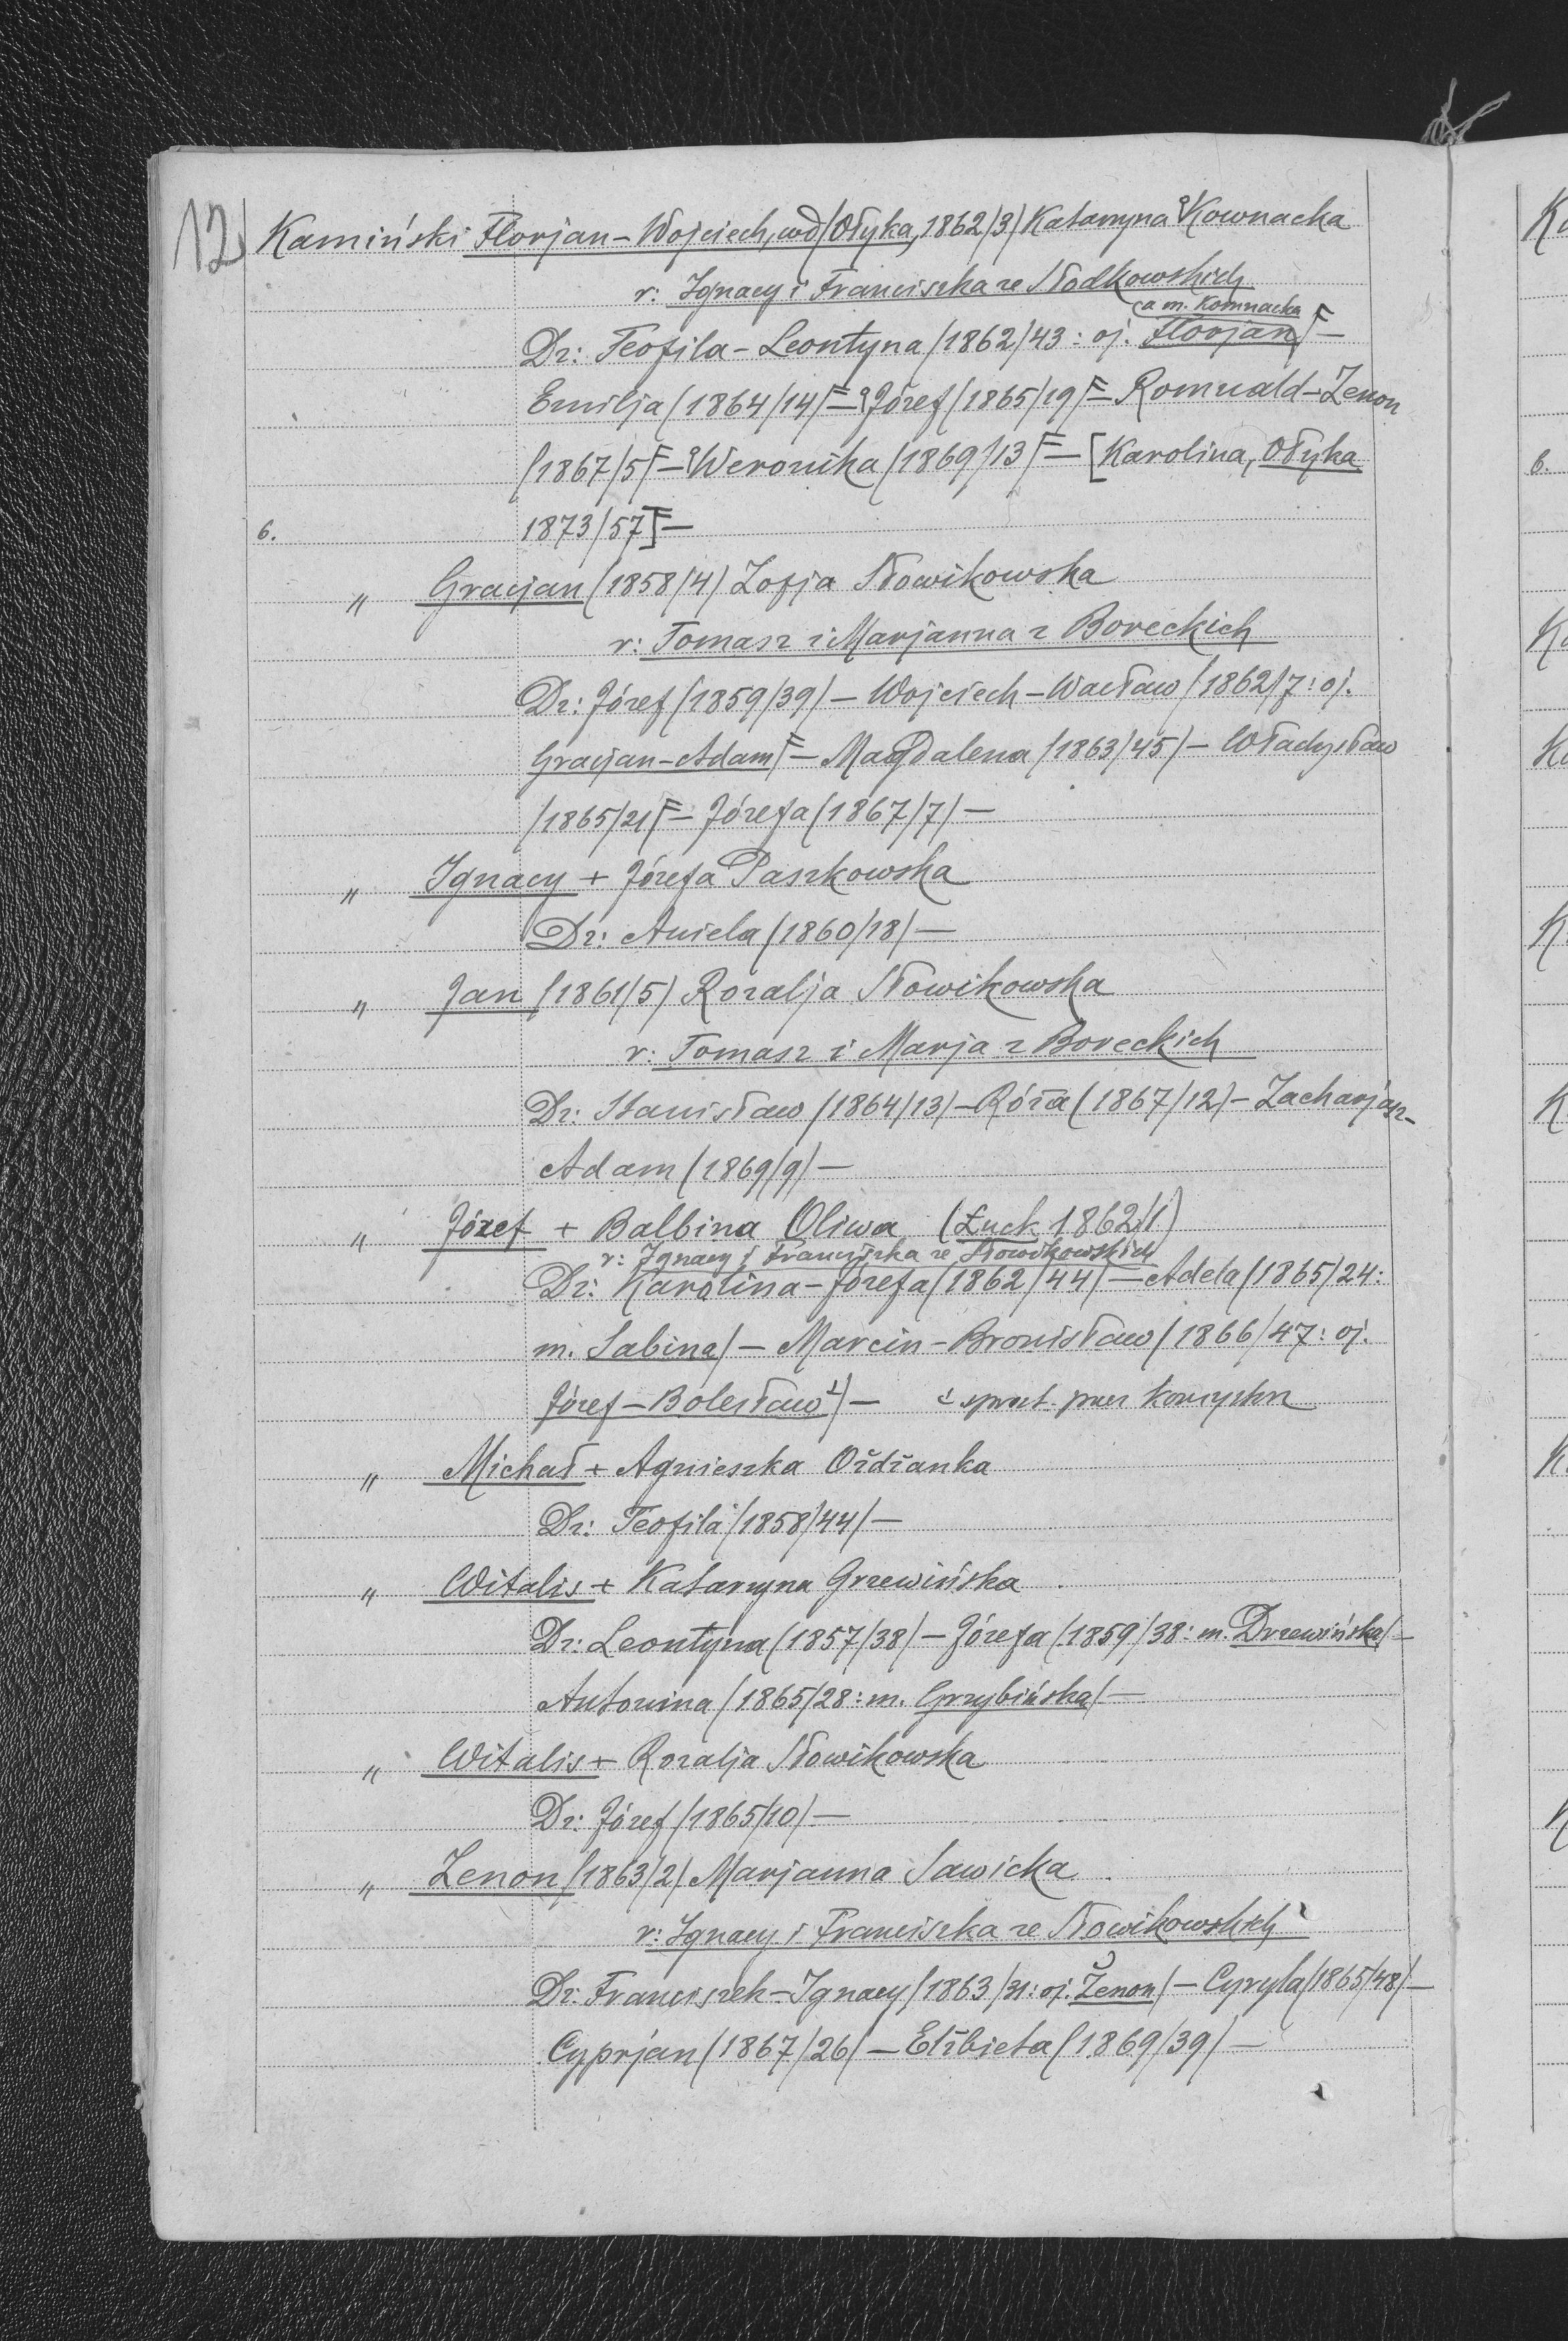 12
Kamiński Florjan-Wojciech, wd (Ołyka, 1862/3) Katarzyna Kownacka
r: Ignacy i Franciszka ze Słodkowskich
a m. Komnacka
Dz: Teofila-Leontyna (1862/43: oj. Florjan) –
Emilja (1864/14) – Józef (1865/19) – Romuald-Zenon
(1867/5) – Weronika (1869/13) – [Karolina, Ołyka
6. 1873/57] –
" Gracjan (1858/4) Zofja Słowikowska
r: Tomasz i Marjanna z Boreckich
Dz: Józef (1859/39) – Wojciech-Wacław (1862/7: oj.
Gracjan-Adam) – Magdalena (1863/45) – Władysław
(1865/21) – Józefa (1867/7) –
" Ignacy + Józefa Paszkowska
Dz: Aniela (1860/18) –
" Jan (1861/5) Rozalja Słowikowska
r: Tomasz i Marja z Boreckich
Dz: Stanisław (1864/13) – Róża (1867/12) – Zacharjasz-
Adam (1869/9) –
" Józef + Balbina Oliwa (Łuck 1862/1)
r: Ignacy i Franciszka ze Słowikowskich
Dz: Karolina-Józefa (1862/44) – Adela (1865/24:
m. Sabina) – Marcin-Bronisław (1866/47: oj.
Józef-Bolesław) –
" Michał + Agnieszka Oždżanka
Dz: Teofila (1858/44) –
" Witalis + Katarzyna Grzewińska
Dz: Leontyna (1857/38) – Józefa (1859/38: m. Drzewińska) –
Antonina (1865/28: m. Grzybińska) –
" Witalis + Rozalja Słowikowska
Dz: Józef (1865/10) –
" Zenon (1863/2) Marjanna Sawicka
r: Ignacy i Franciszka ze Słowikowskich
Dz: Franciszek-Ignacy (1863/31: oj. Zenon) – Cyryla (1865/48) –
Cyprjan (1867/26) – Elżbieta (1869/39) –